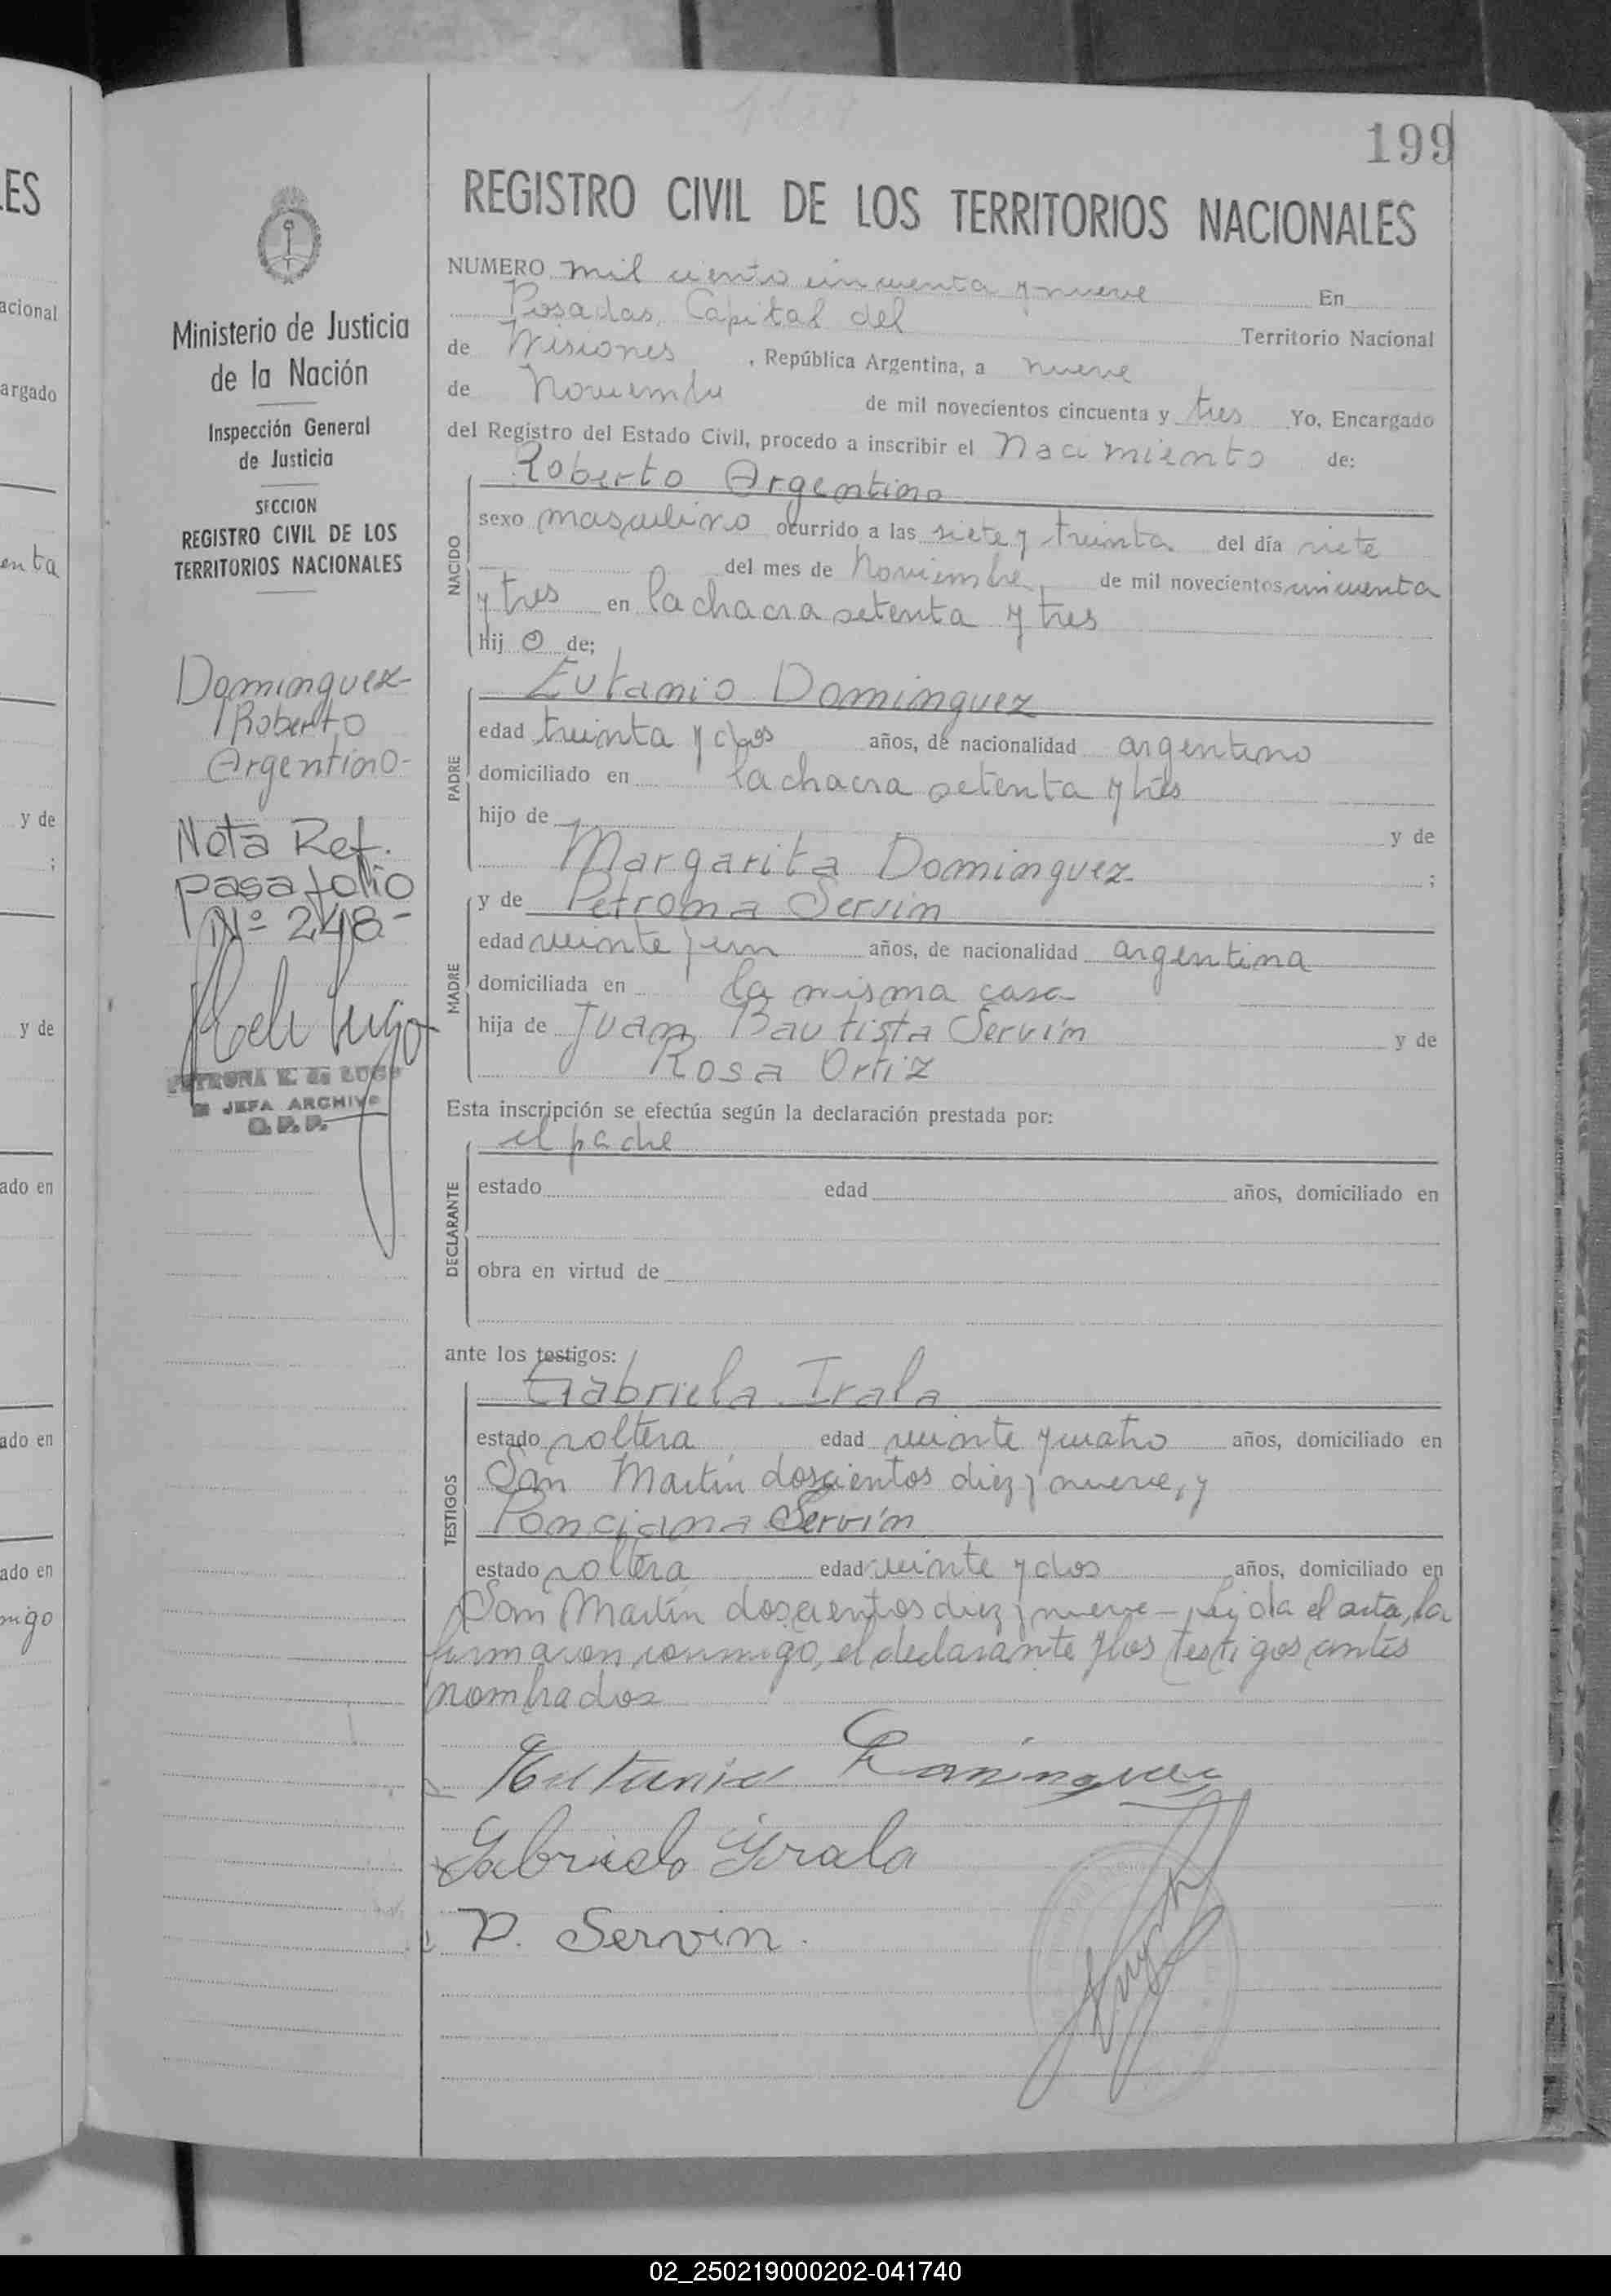 199
REGISTRO CIVIL DE LOS TERRITORIOS NACIONALES
NUMERO mil ciento cincuenta y nueve En
Posadas, Capital del Territorio Nacional
de Misiones, República Argentina, a nueve
de Noviembre de mil novecientos cincuenta y tres Yo, Encargado
del Registro del Estado Civil, procedo a inscribir el Nacimiento de:
NACIDO
Roberto Argentino
sexo masculino ocurrido a las siete y treinta del día siete
del mes de Noviembre de mil novecientos cincuenta
y tres en la chacra setenta y tres
hijo de;
PADRE
Eutanio Dominguez
edad treinta y dos años, de nacionalidad argentino
domiciliado en la chacra setenta y tres
hijo de y de
Margarita Dominguez ;
MADRE
y de Petrona Servin
edad veinte y un años, de nacionalidad argentina
domiciliada en la misma casa
hija de Juan Bautista Servín y de
Rosa Ortiz
Esta inscripción se efectúa según la declaración prestada por:
DECLARANTE
el padre
estado edad años, domiciliado en
obra en virtud de
ante los testigos:
TESTIGOS
Gabriela Irala
estado soltera edad veinte y cuatro años, domiciliado en
San Martín doscientos diez y nueve, y
Ponciana Servín
estado soltera edad veinte y dos años, domiciliado en
San Martín doscientos diez y nueve - Leida el acta, la
firmaron conmigo, el declarante y los testigos antes
nombrados
Eutanio Dominguez
Gabriela Yrala
P. Servin
Ministerio de Justicia
de la Nación
Inspección General
de Justicia
SECCION
REGISTRO CIVIL DE LOS
TERRITORIOS NACIONALES
Dominguez
Roberto
Argentino-
Nota Ref.
pasa folio
Nº 248-
PETRONA de LUGO
JEFA ARCHIVO
ES
acional
argado
enta
y de
;
y de
ado en
ado en
ado en
migo
02_250219000202-041740